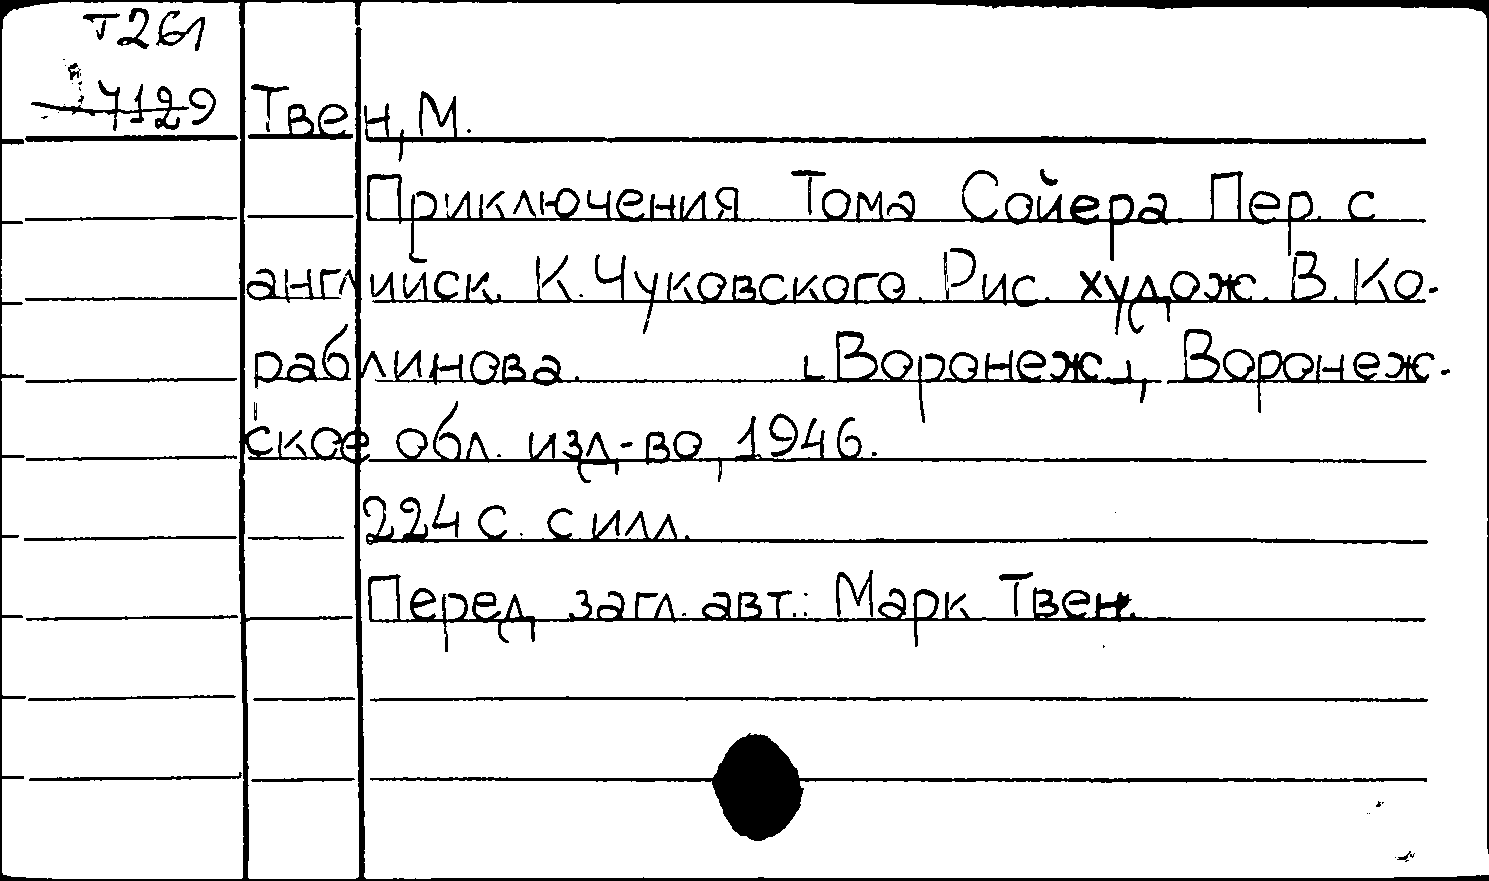 Т261
7129 Твен, М.
Приключения Тома Сойера. Пер. с
английск. К. Чуковского. Рис. худож. В. Ко-
раблинова. [Воронеж], Воронеж-
ское обл. изд-во, 1946.
224 с. с илл.
Перед загл. авт.: Марк Твен.